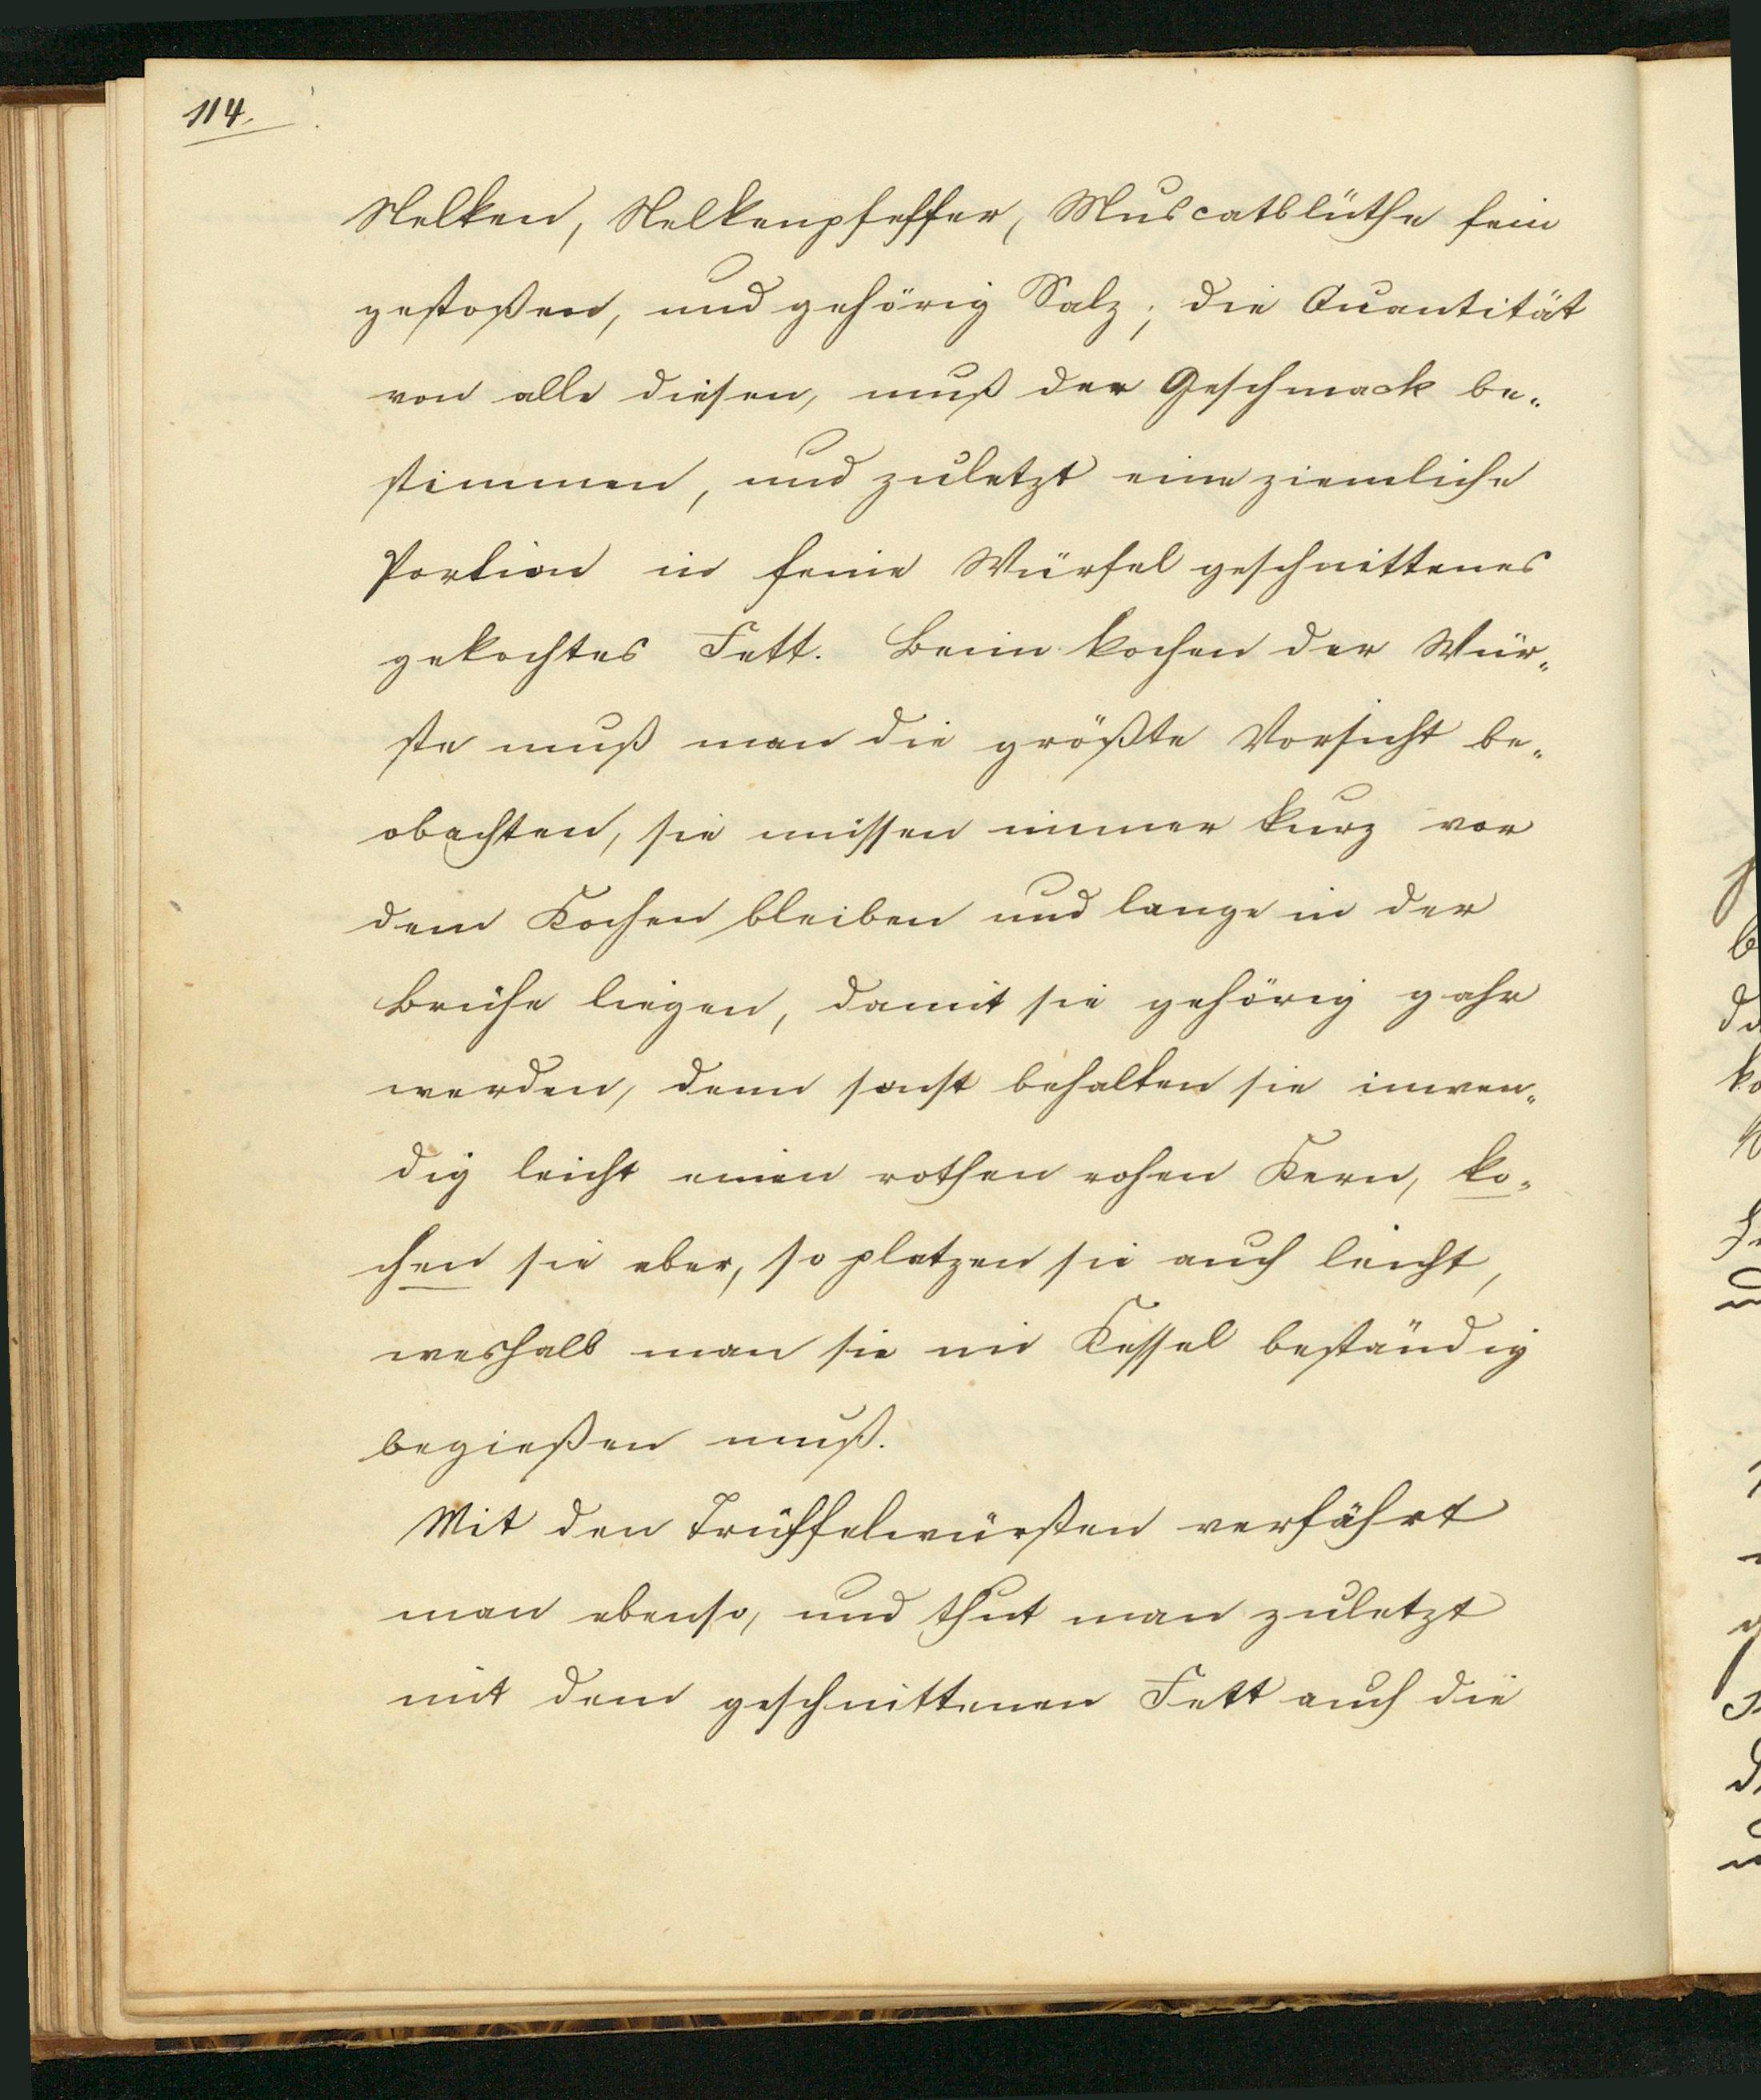 114.
Nelken, Nelkenpfeffer, Muscatblüthe fein
gestoßen, und gehörig Salz; die Quantität
von alle diesen, muß der Geschmack be-
stimmen, und zuletzt eine ziemliche
Portion in feine Würfel geschnittenes
gekochtes Fett. Beim kochen der Wür-
ste muß man die größte Vorsicht be-
obachten, sie müssen immer kurz vor
dem Kochen bleiben und lange in der
Brühe liegen, damit sie gehörig gahr
werden, denn sonst behalten sie inwen-
dig leicht einen rothen rohen Kern, ko-
chen sie aber, so platzen sie auch leicht,
weshalb man sie im Kessel beständig
begießen muß.
Mit den Trüffelwürsten verfährt
man ebenso, und thut man zuletzt
mit dem geschnittenen Fett auch die